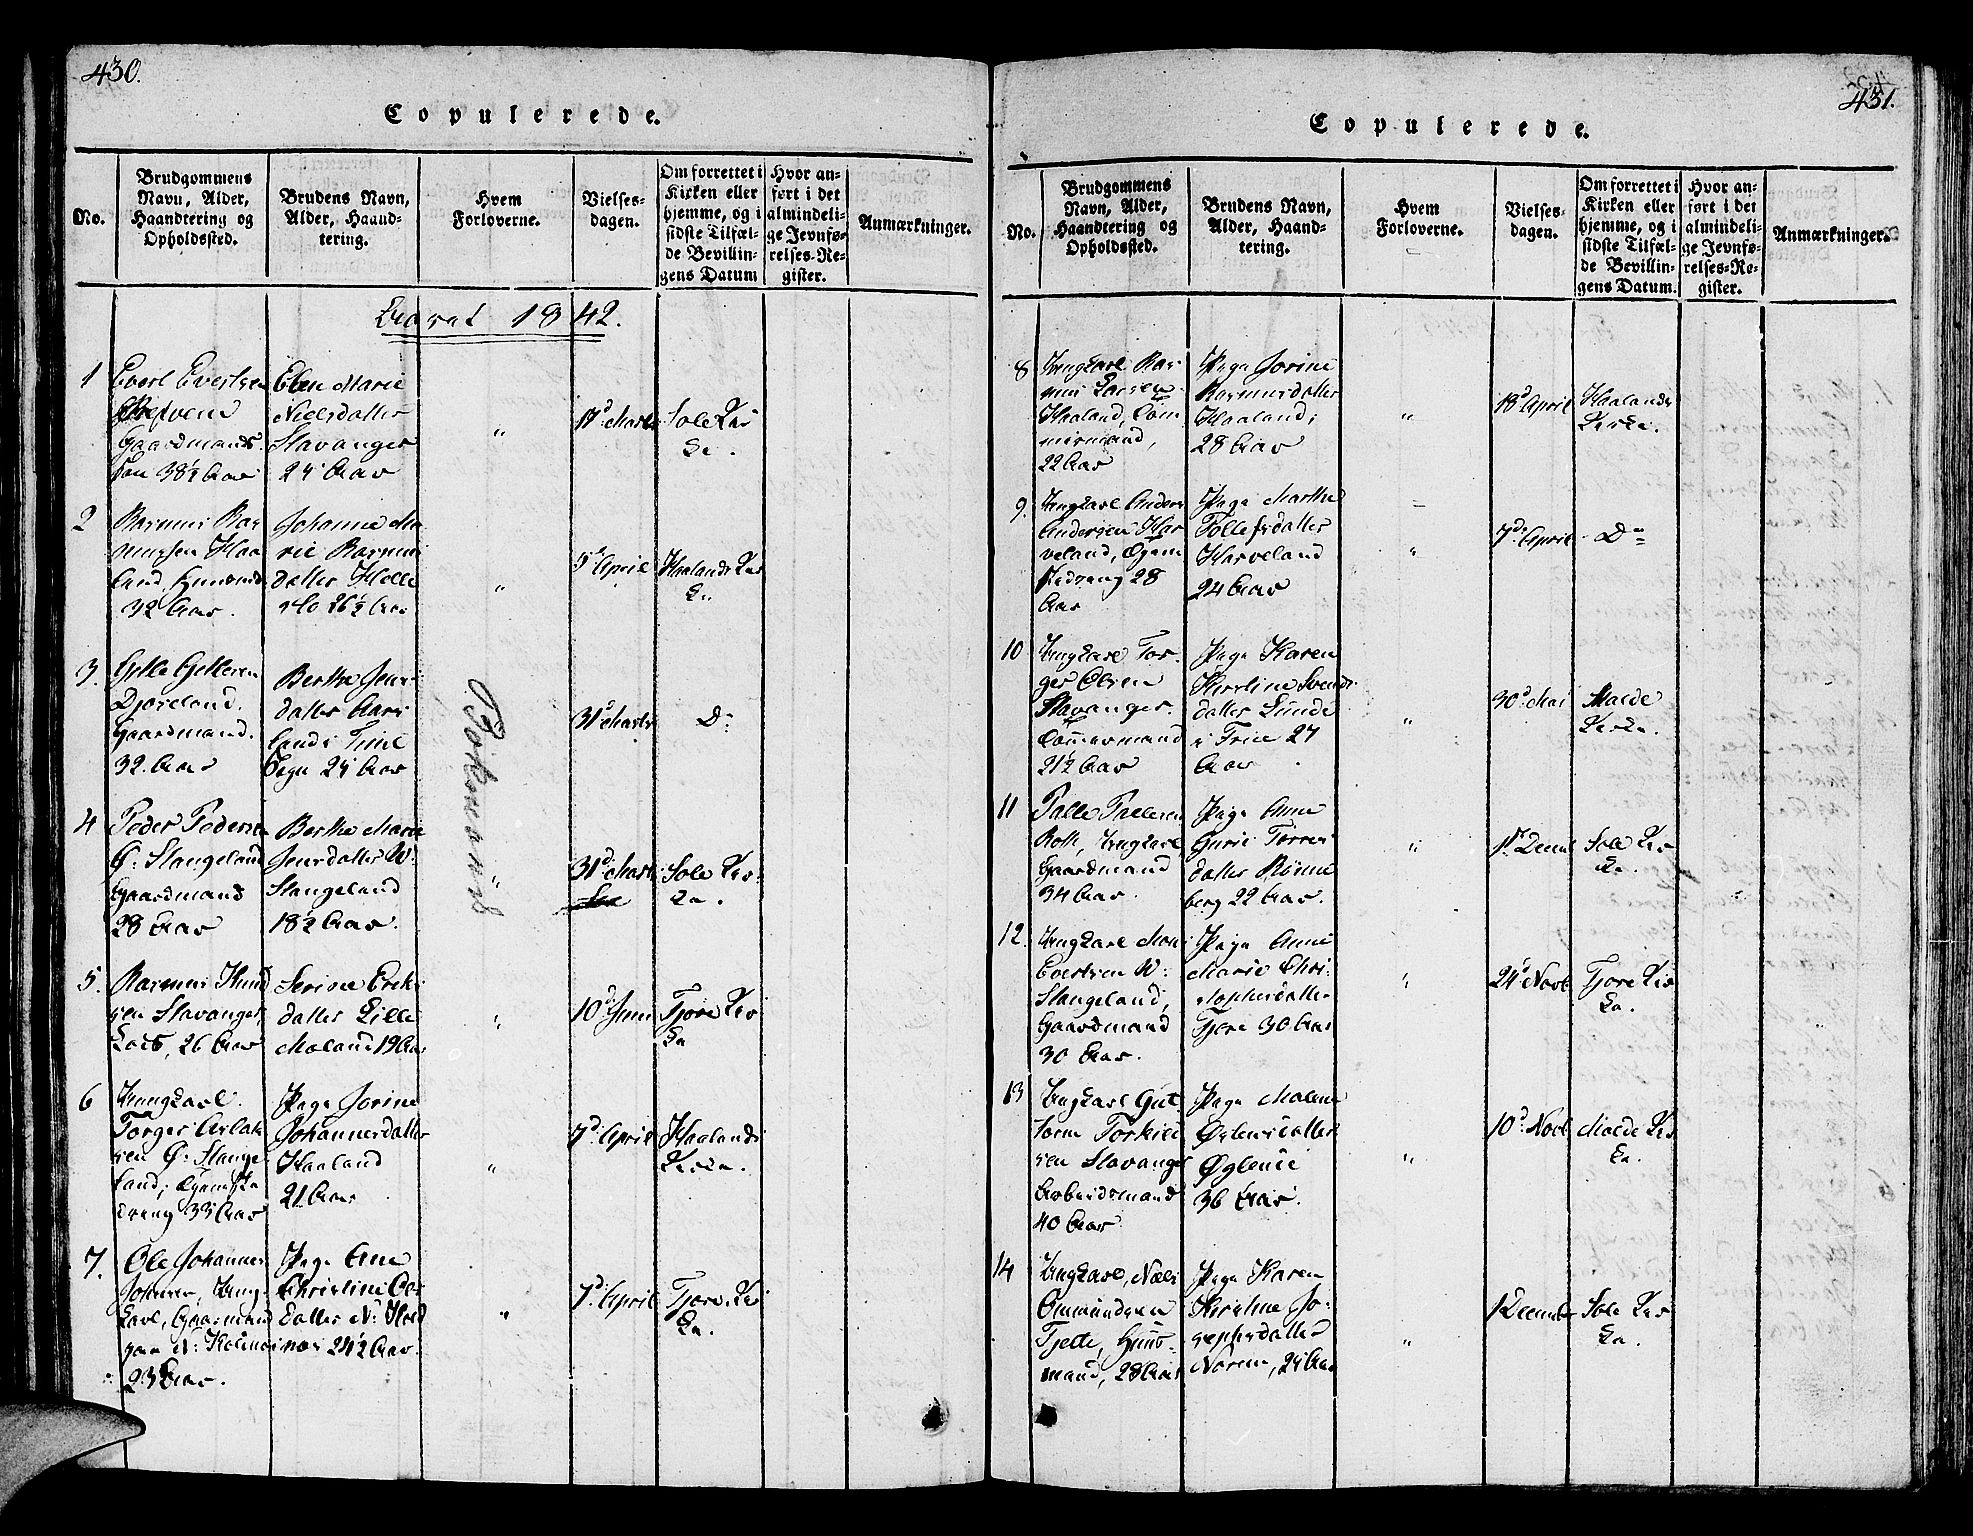 430.
Copulerede.
No.
Brudgommens
Navn, Alder,
Haandtering og
Opholdssted.
Brudens Navn,
Alder, Haand-
tering.
Hvem
Forloverne.
Vielses-
dagen.
Om forrettet i
Kirken eller
hjemme, og i
sidste Tilfæl-
de Bevillin-
gens Datum
Hvor an-
ført i det
almindeli-
ge Jevnfø-
relses-Re-
gister.
Anmærkninger.
Aaret 1842.
1
Evert Evertsen
Gaardmands
Søn 38½ Aar
Elen Marie
Nielsdatter
Stavanger
24 Aar
"
17d Marts
Sole Kir
ke.
2
Rasmus Ras
mussen Haa
land, Huusmd
32 Aar.
Johanne Ma
rie Rasmus
datter Helle
stø 26½ Aar
"
5te April
Haalands Kir
ke
3.
Gjelle Gjellesen
Gaardmand.
32. Aar
Berthe Jens
datter Aars
land i Time
Sogn 24 Aar
31d Marts
Do
Forlovernes
4
Peder Pedersen
Ø: Stangeland
Gaardmand
28 Aar
Berthe Marie
Jensdatter W:
Stangeland
18½ Aar.
"
31d Marts
Sole Kir
ke.
5.
Rasmus Knud
sen Stavanger,
Lods, 26 Aar
Serine Eriks
datter Lille
Meland 19 Aar
"
10d Juni
Tjore Kir
ke
6
Ungkarl
Torger Aslak
sen Ø: Stange
land, Tjeneste
dreng 33 Aar
Pige Jorine
Johannesdatter
Haaland
21 Aar
"
7d April
Haalands
Kirke.
7.
Ole Johannes
Johnsen, Ung-
karl, Gaardmand
23 Aar.
Pige Ane
Christine Ols
datter N: Kold
næs 24½ Aar.
"
7d April
Tjore Kir
ke.
431.
Copulerede.
No.
Brudgommens
Navn, Alder,
Haandtering og
Opholdssted.
Brudens Navn,
Alder, Haand-
tering.
Hvem
Forloverne.
Vielses-
dagen.
Om forrettet i
Kirken eller
hjemme, og i
sidste Tilfæl-
de Bevillin-
gens Datum.
Hvor an-
ført i det
almindeli-
ge Jevnfø-
relses-Re-
gister.
Anmærkninger.
8
Ungkarl Ras
mus Larsen
Haaland, Tøm
mermand,
22 Aar
Pige Jorine
Rasmusdatter
Haaland,
28 Aar
"
18d April
Haalands
Kirke.
9.
Ungkarl Anders
Andersen Har
veland, Tjene
stedreng 28
Aar
Pige Marthe
Tollefsdatter
Harveland
24 Aar
"
7d April
Do
10
Ungkarl Tor
ger Olsen
Stavanger.
Tømmermand
21½ Aar
Pige Karen
Kirstine Svends
datter Lunde
27
Aar
"
30d Mai
Malde
Kirke.
11
Talle Tallesen
Roth, Ungkarl
Gaardmand
34 Aar.
Pige Anne
Gurie Torres
datter Rønne
berg 22 Aar.
"
1d Decemb
Sole Kir
ke.
12.
Ungkarl Mons
Evertsen W:
Stangeland,
Gaardmand
30 Aar.
Pige Anne
Marie Chri-
stophersdatter
Tjore 30 Aar
"
24d Novb
Tjore Kir
ke.
13
Ungkarl Gut
torm Torkild
sen Stavanger
Arbeidsmand
40 Aar
Pige Malene
Østensdatter
Øglend
36 Aar.
"
10d Novb
Malde Kir
ke.
14
Ungkarl, Niels
Ommundsen
Tjelte, Huus-
mand, 28 Aar
Pige Karen
Kirstine Jo-
sephsdatter
Norem, 24 Aar
"
1 December
Sole Kir
ke.